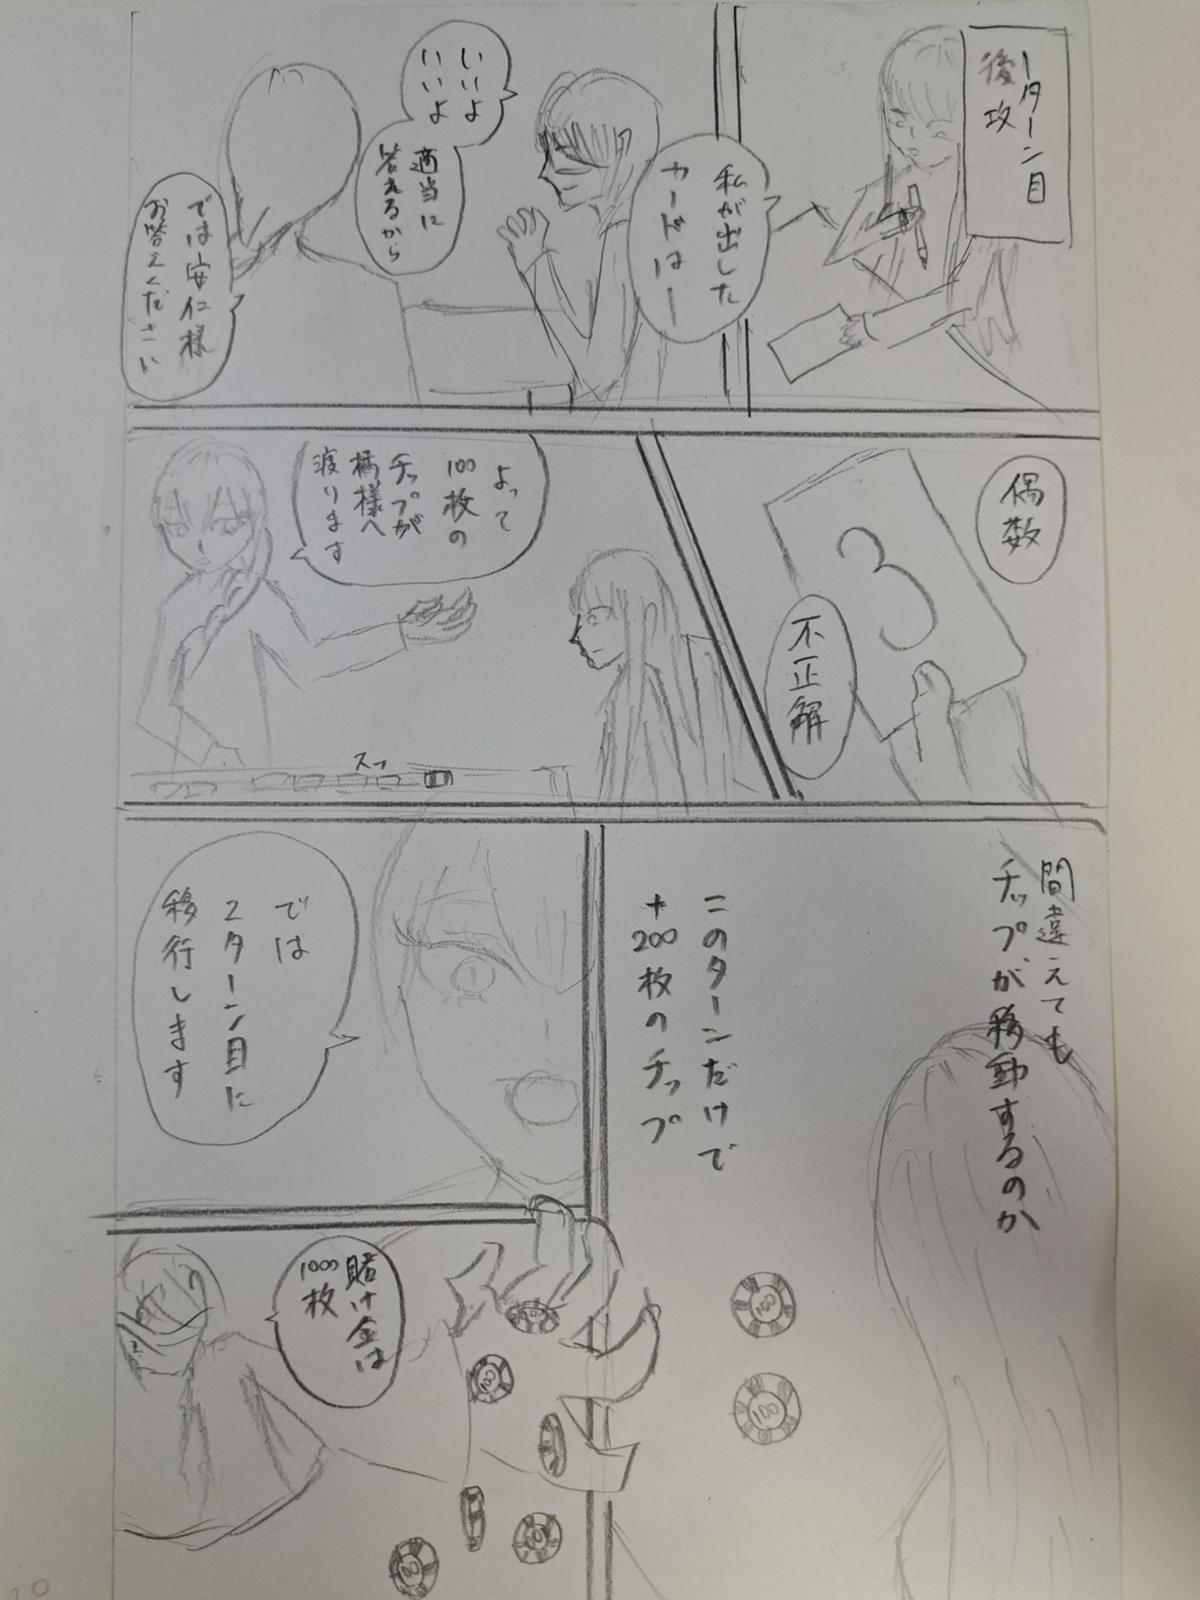 1ターン目
後攻
私が出した
カードはー
いいよ
いいよ
適当に
答えるから
では安仁様
お答えください
偶数
3
不正解
よって
100枚の
チップが
橘様へ
渡ります
スッ
間違えても
チップが移動するのか
このターンだけで
+200枚のチップ
100
100
では
2ターン目に
移行します
賭け金は
1000枚